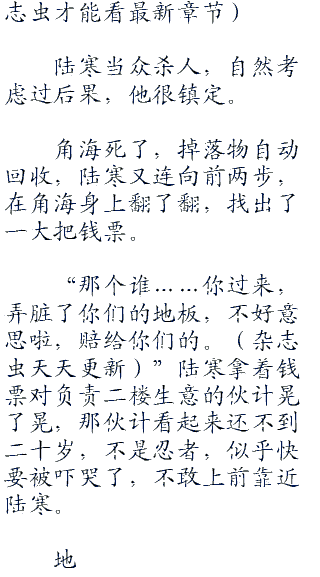 志虫才能看最新章节）
陆寒当众杀人，自然考
虑过后果，他很镇定。
角海死了，掉落物自动
回收，陆寒又连向前两步，
在角海身上翻了翻，找出了
一大把钱票。
“那个谁……你过来，
弄脏了你们的地板，不好意
思啦，赔给你们的。（杂志
虫天天更新）”陆寒拿着钱
票对负责二楼生意的伙计晃
了晃，那伙计看起来还不到
二十岁，不是忍者，似乎快
要被吓哭了，不敢上前靠近
陆寒。
地